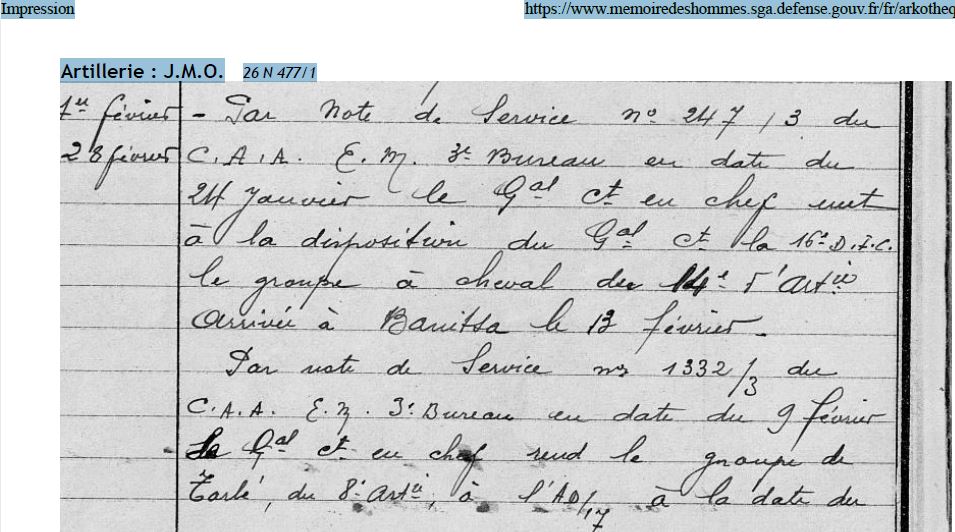 Impression https://www.memoiredeshommes.sga.defense.gouv.fr/fr/arkotheq
Artillerie : J.M.O. 26 N 477/1
1er février - Par Note de Service no 247 / 3 du
28 février C.A.A. E.M. 3e Bureau en date du
24 Janvier le Gal Ct en chef met
à la disposition du Gal Ct la 16e D.I.C.
le groupe à cheval du 14e d'Artie
Arrivée à Banitsa le 13 février -
Par note de Service no 1332/3 du
C.A.A. E.M. 3e Bureau en date du 9 février
Le Gal Ct en chef rend le groupe de
du 8e Artie, à l'AD/17 à la date du